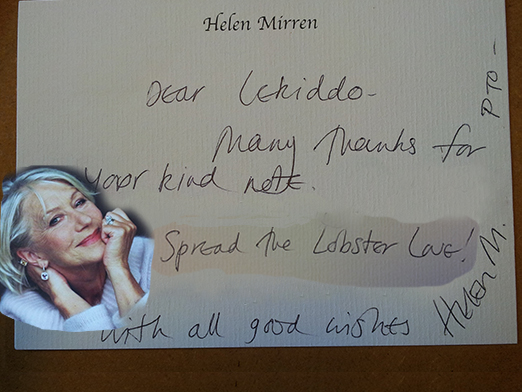 Helen Mirren
Dear Lekiddo-
Many Thanks for
your kind note.
Spread the Lobster Love!
With all good wishes
Helen M.
PTO -